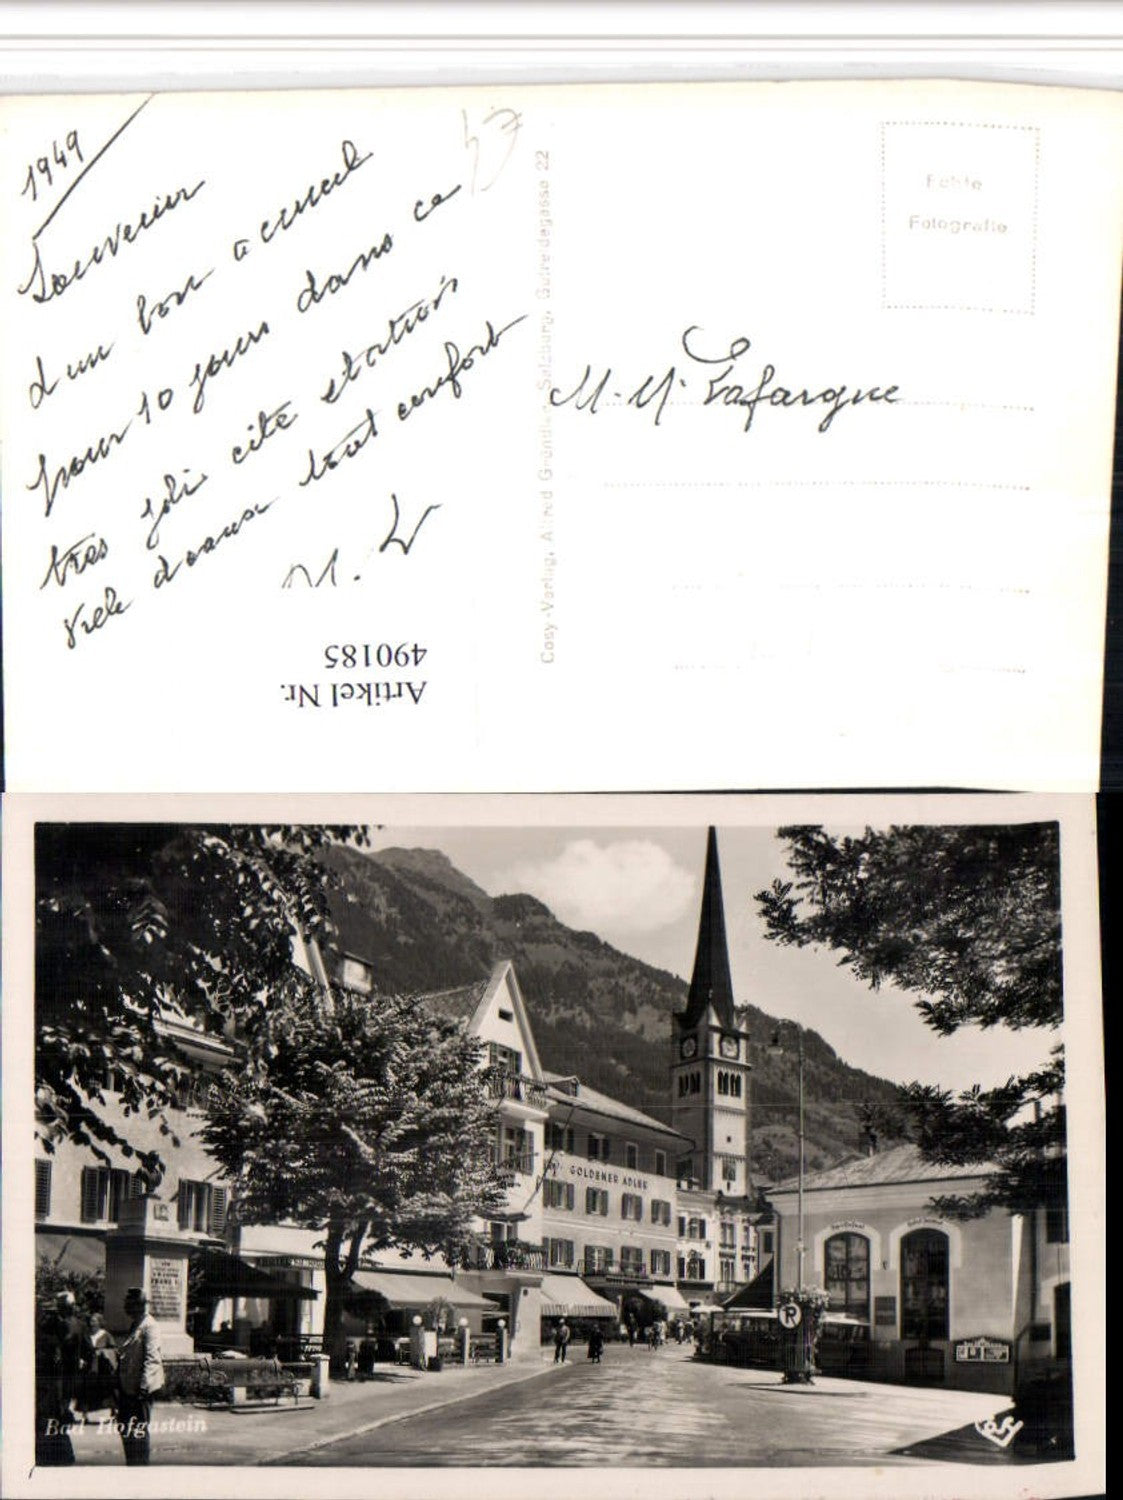 1949
Souvenir
d'un bon accueil
pour 10 jours dans ce
très joli cité
tout confort
M. L
Artikel Nr.
490185
Cosy-Verlag, Alfred Gründler, Salzburg, Guirathgasse 22
Echte
Fotografie
M. M. Lafargue
GOLDENER ADLER
FRANZ I.
P
Bad Hofgastein
Cosy